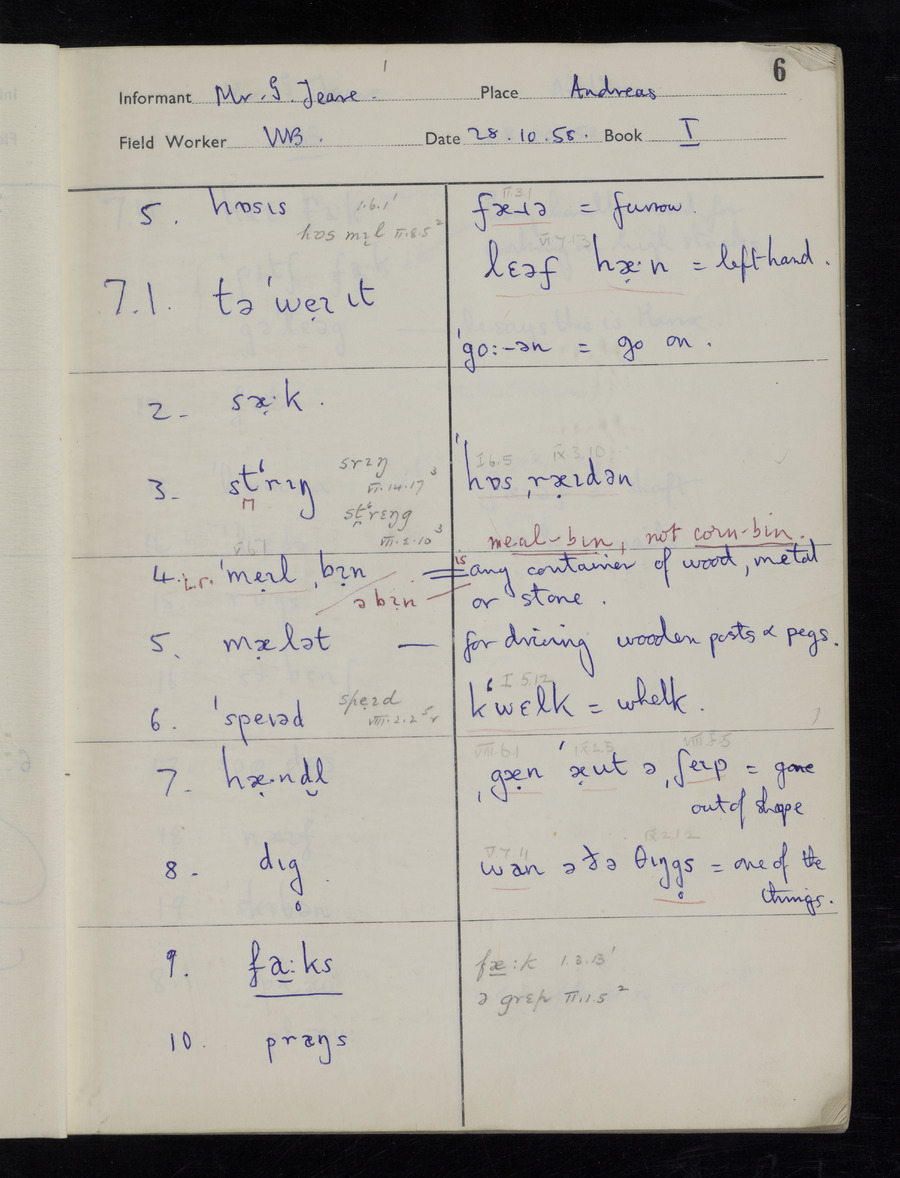 6
Informant Mr. G. Teare. Place Andreas
Field Worker WB. Date 28.10.58. Book I
5. hɒsɪs 1.6.1¹
hɒs mɪ̣l II.8.5²
7.1. tə ˈwẹɪ ɪt
2. sæ̣·k.
3. stʻrɪŋ srɪŋ
VI.14.17³
stʻrɛŋg
VIII.2.10³
V.6.1
4. i.r. ˈmẹɪl ˌbɪ̣n
ə bɪ̣n
5. mæ̣lət
6. ˈspeɪəd spẹɪd
VIII.2.2⁵
7. hæ̣·ndl̩
8. dɪg̥
9. fa̱:ks
10. præŋs
II.3.1
fæɹə = furrow.
VI.7.13
lɛəf hæ̣·n = left hand.
ˈgo:-ən = go on.
I.6.5 IX.3.10
ˈhɒs ˌræ̣ɪdən
meal-bin, not corn-bin.
= is any container of wood, metal
or stone.
— for driving wooden posts & pegs.
I 5.12
kʻwɛlk = whelk.
VIII.6.1 IX.2.5 VIII.8.5
ˌgæ̣n ˈæ̣ut ə ˌʃeɪp = gone
out of shape
V.7.11 IX.2.12
wan ə ðə θɪŋgs̥ = one of the
things.
fæ̱:k 1.3.13¹
ə grɛp II.1.5²